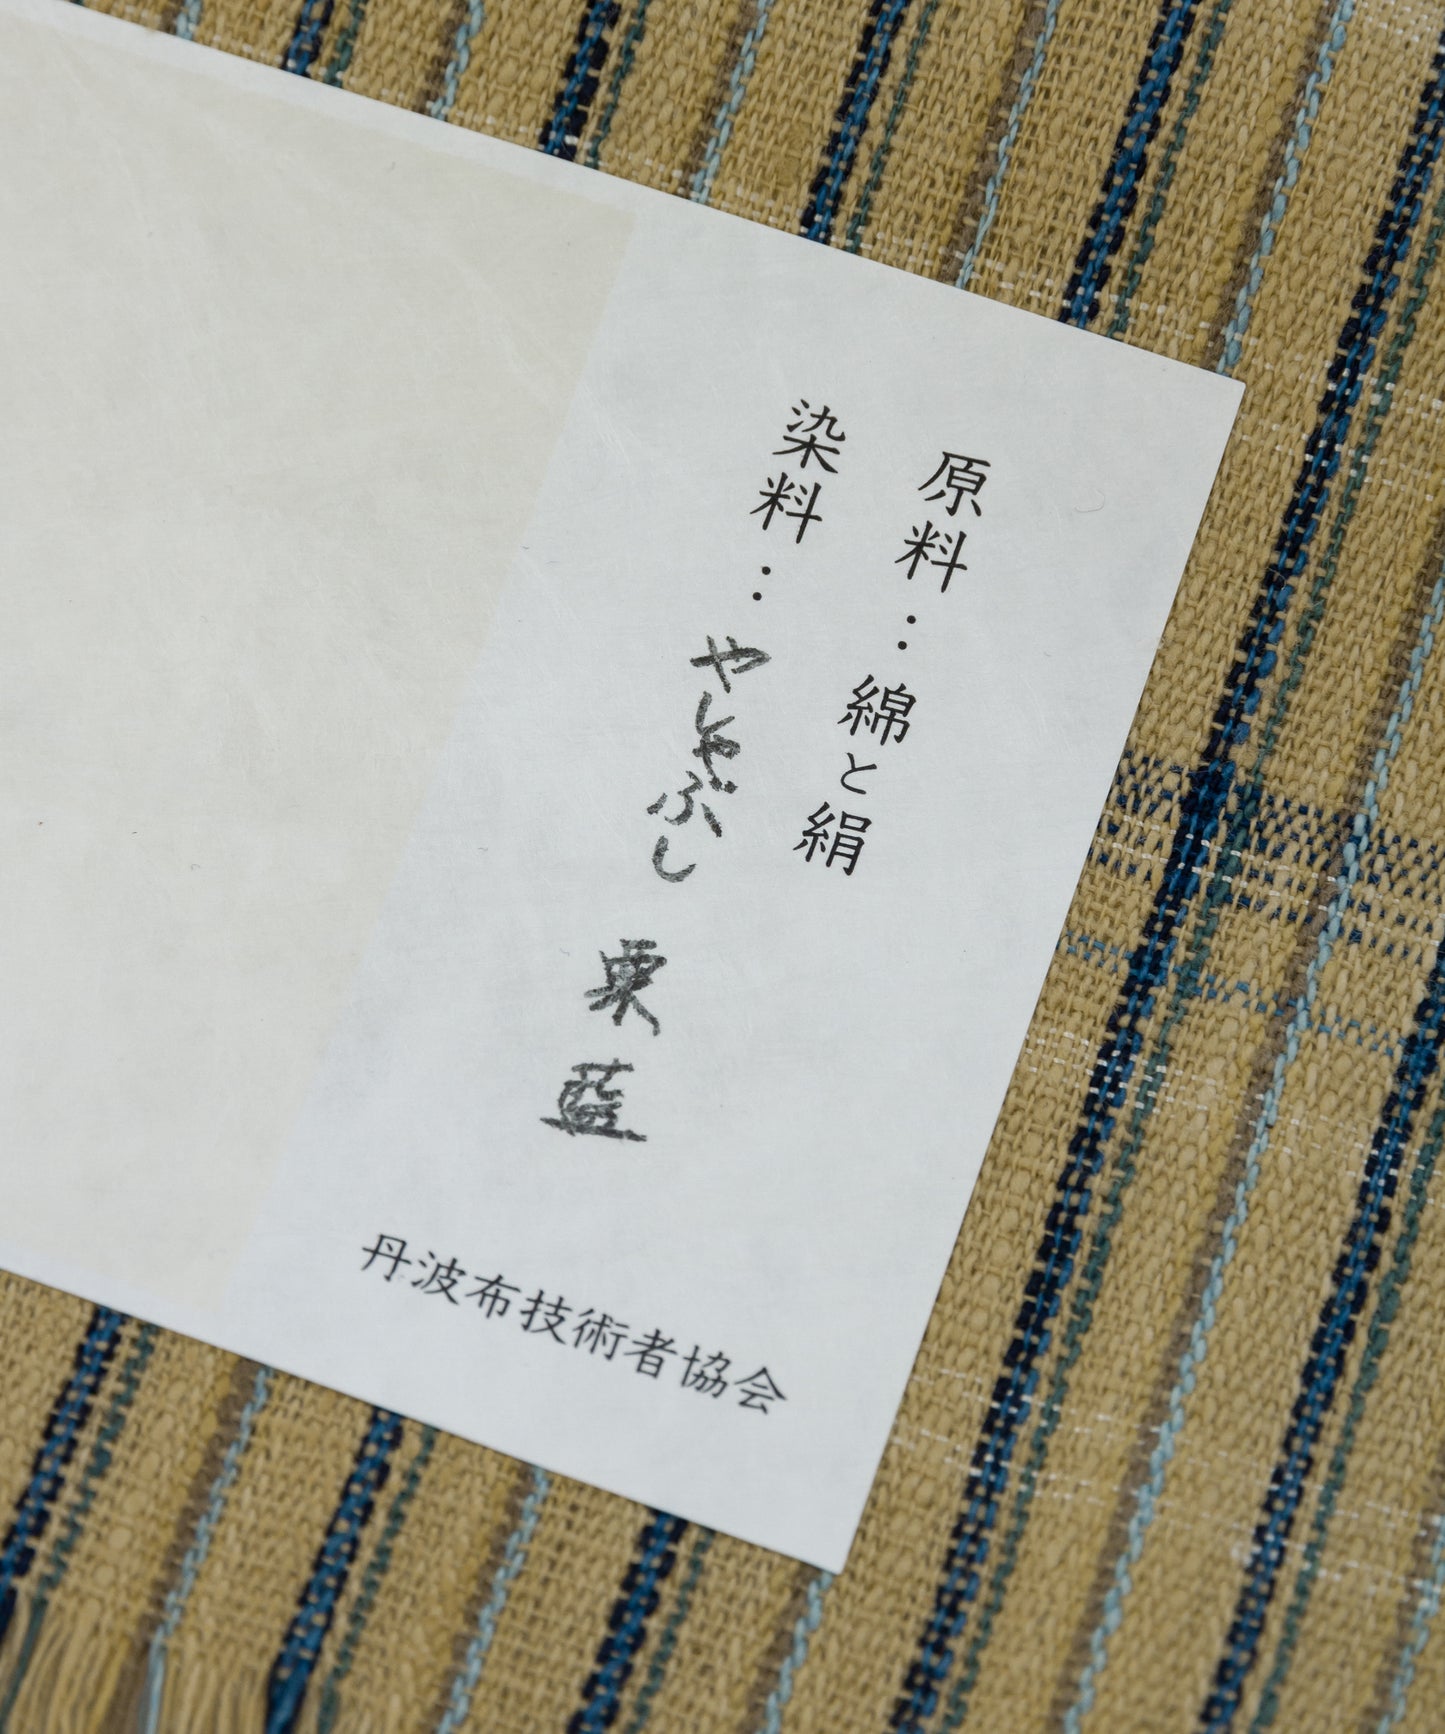 原料：綿と絹
染料：やしゃぶし 栗 藍
丹波布技術者協会